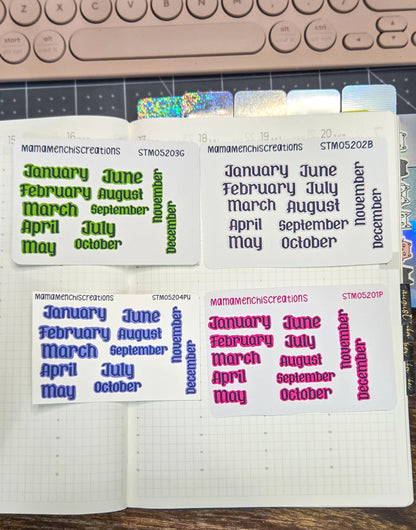 Z X C V B N M
start alt alt ctrl
15 16 18 19 20
MamaMenchisCreations STM05203G
January June
February August
March September
April July
May October
November
December
MamaMenchisCreations STM05202B
January June
February July
March August
April September
May October
November
December
MamaMenchisCreations STM05204PU
January June
February August
March September
April July
May October
November
December
MamaMenchisCreations STM05201P
January June
February July
March August
April September
May October
November
December